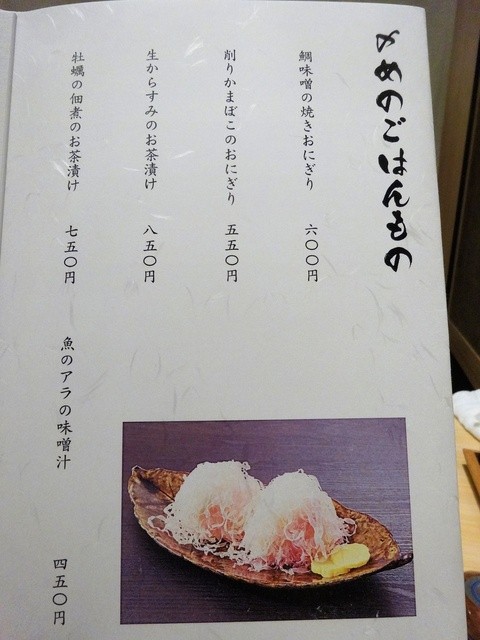 〆めのごはんもの
鯛味噌の焼きおにぎり 六〇〇円
削りかまぼこのおにぎり 五五〇円
生からすみのお茶漬け 八五〇円
牡蠣の佃煮のお茶漬け 七五〇円
魚のアラの味噌汁 四五〇円